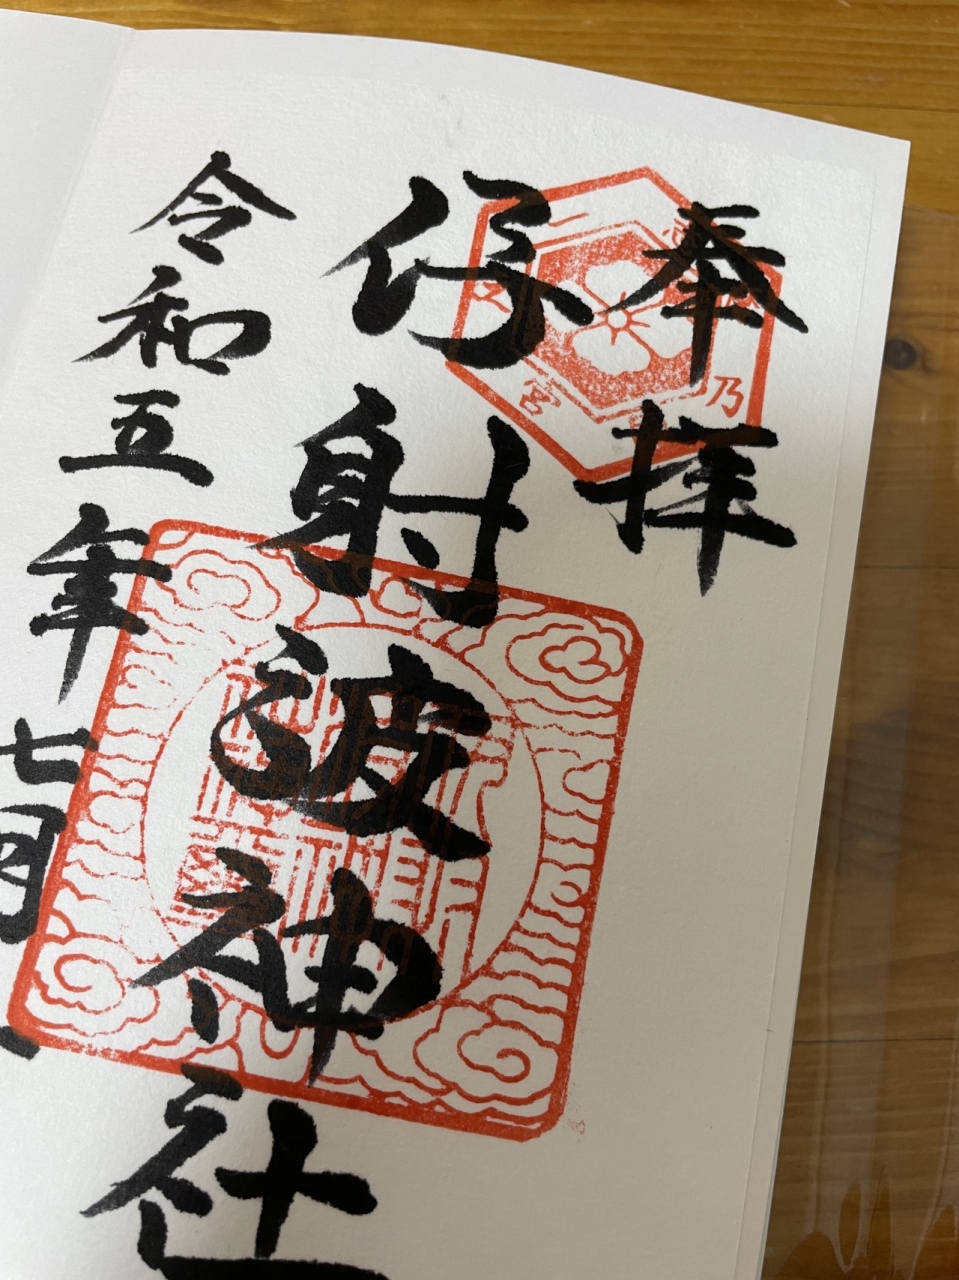 奉拝
伊射波神社
令和五年七月